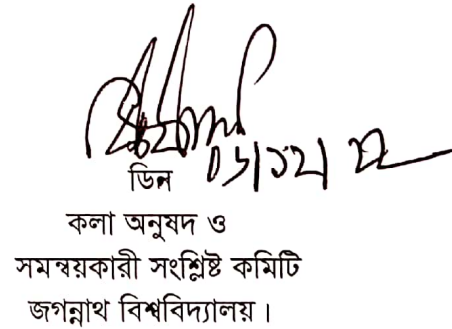 ডিন
কলা অনুষদ ও
সমন্বয়কারী সংশ্লিষ্ট কমিটি
জগন্নাথ বিশ্ববিদ্যালয়।